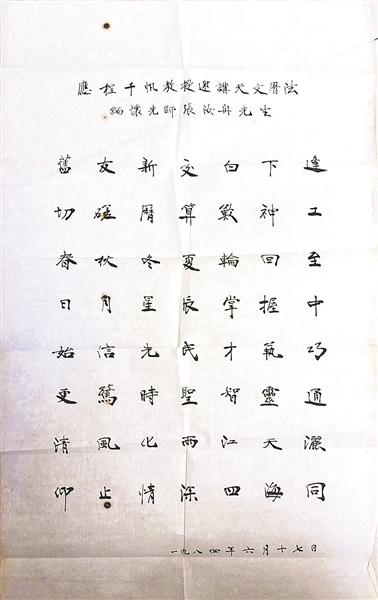 應程千帆教授邀講天文曆法
緬懷先師張汝舟先生
舊友新交白下逢
切磋曆算數神工
春秋冬夏輪回至
日月星辰掌握中
始信先民才藝巧
更驚時聖智靈通
清風化雨江天灑
仰止情深四海同
一九八四年六月十七日